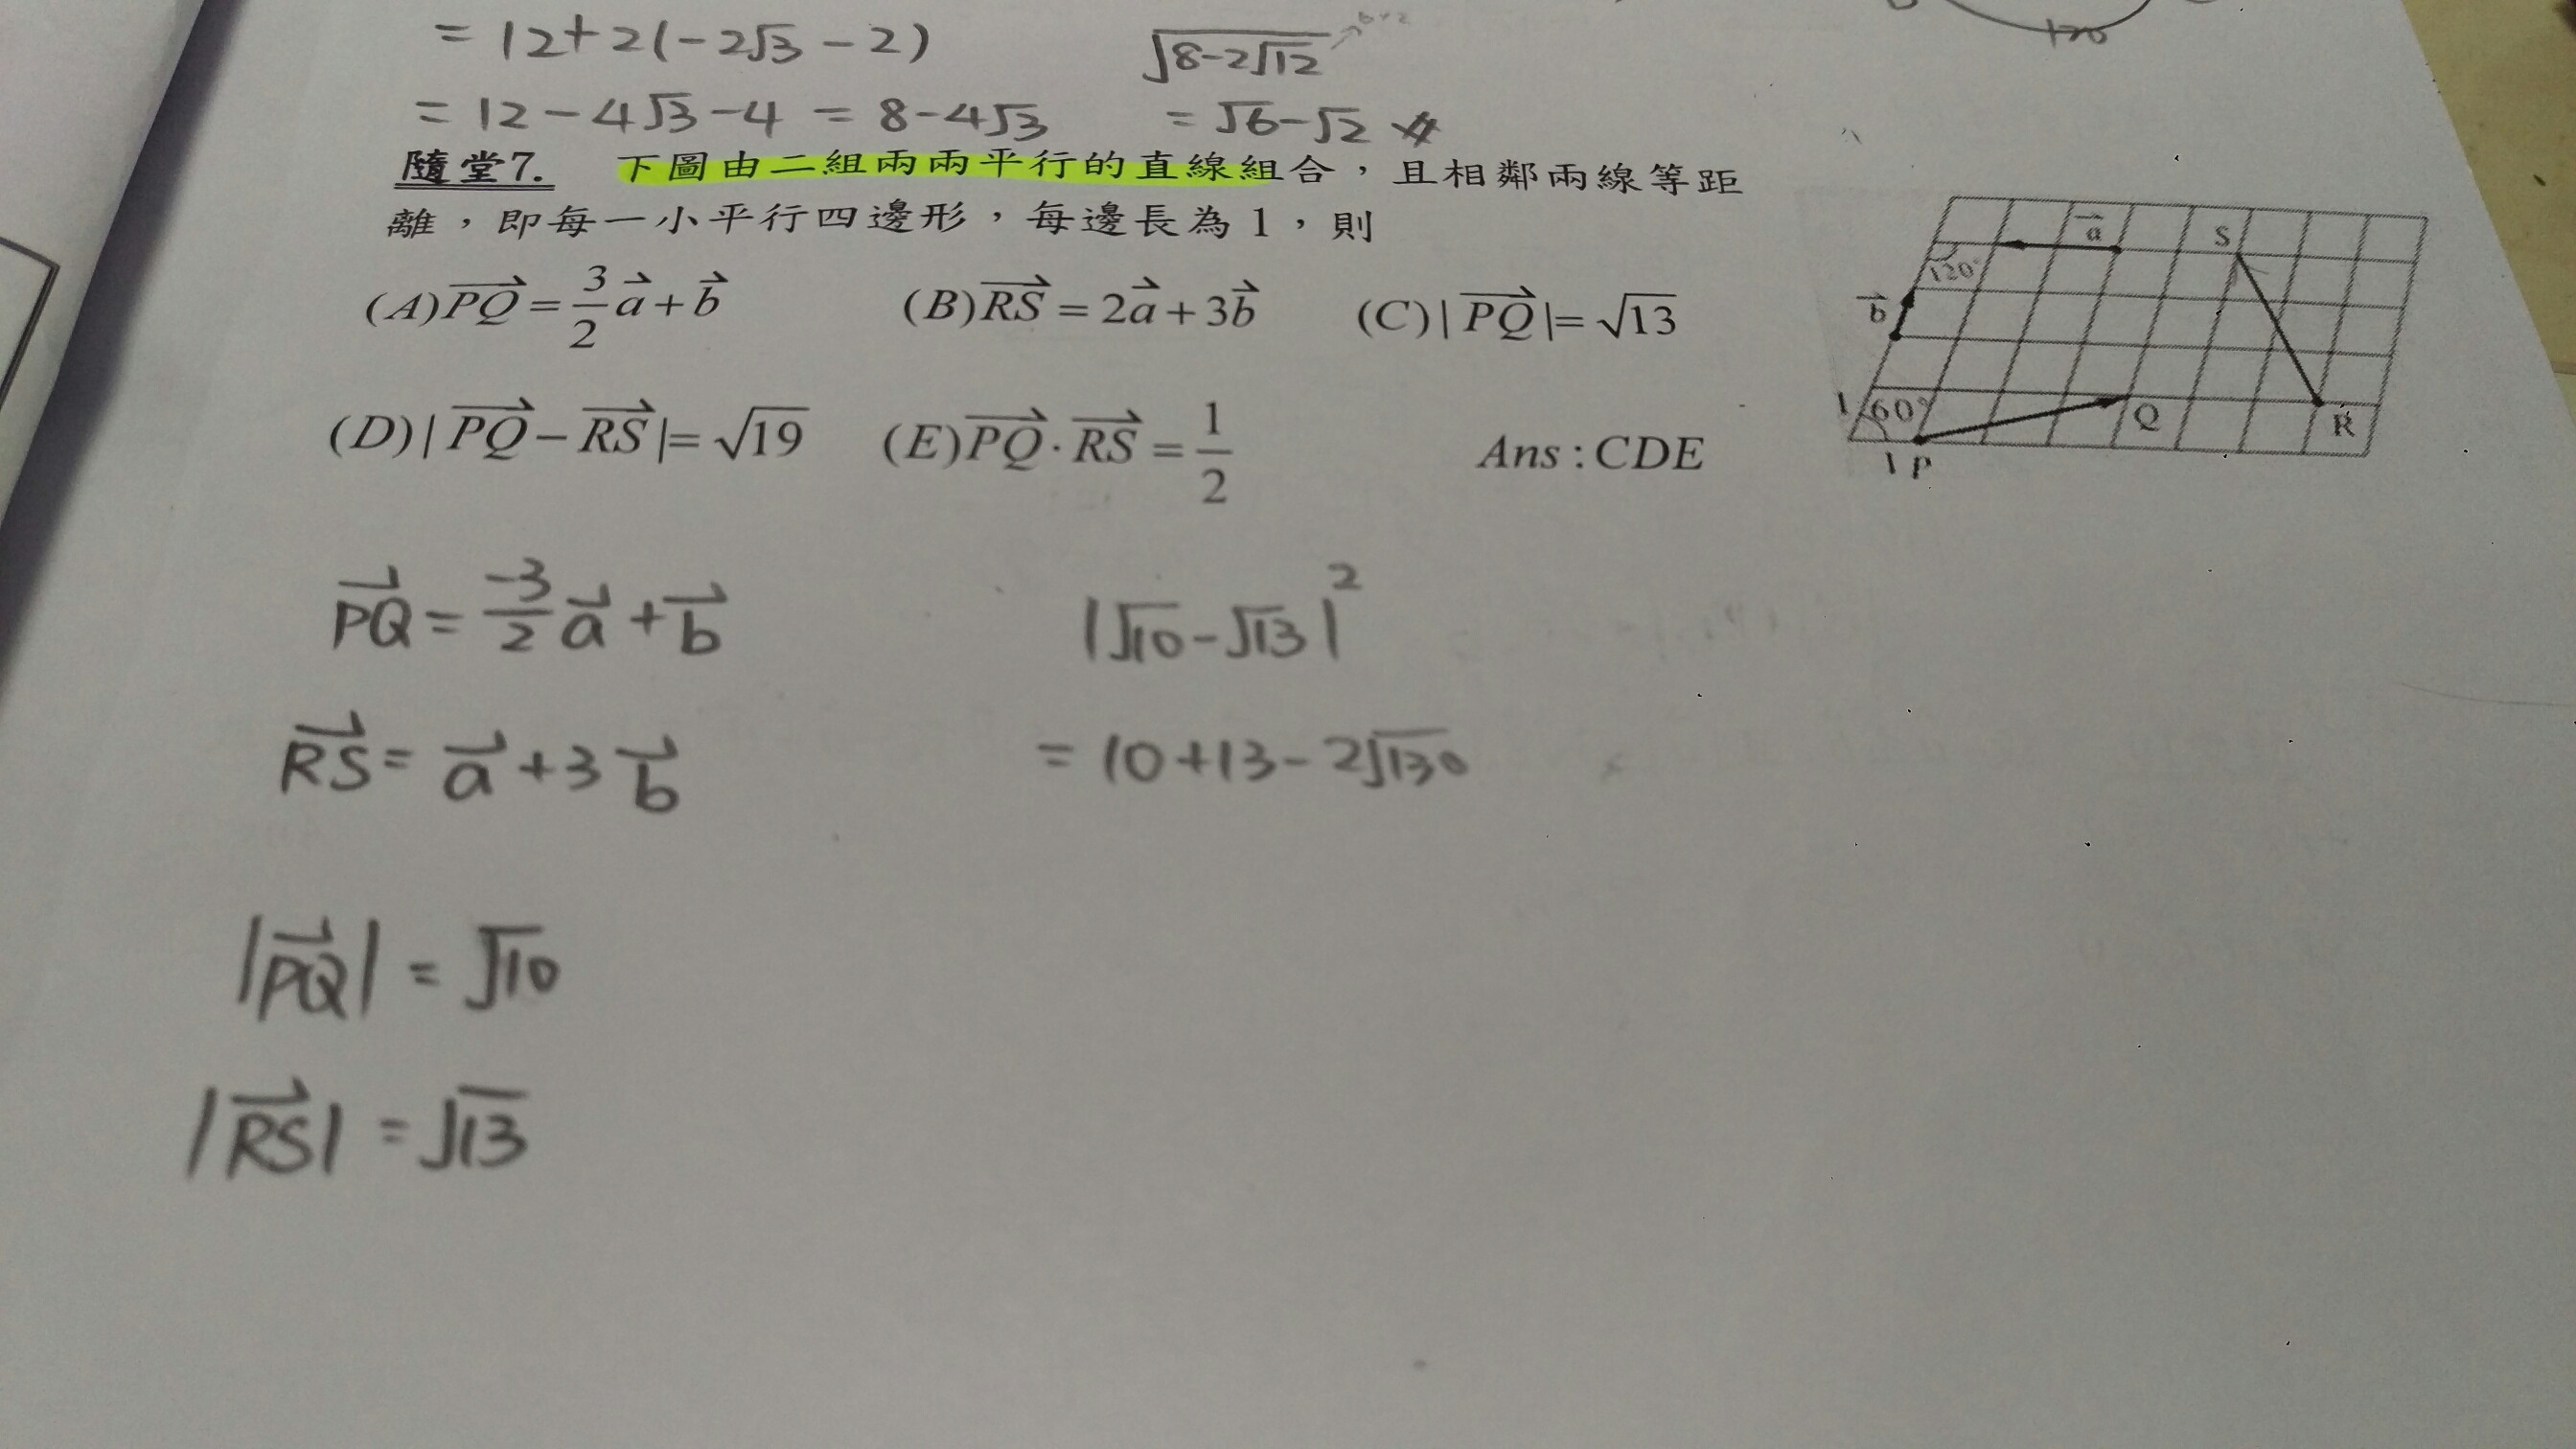 = 12+2(-2√3 - 2)
√(8-2√12)
= 12 - 4√3 - 4 = 8 - 4√3
= √6-√2
隨堂7. 下圖由二組兩兩平行的直線組合，且相鄰兩線等距
離，即每一小平行四邊形，每邊長為1，則
(A) PQ⃗ = 3/2 a⃗ + b⃗ (B) RS⃗ = 2a⃗ + 3b⃗ (C) | PQ⃗ |= √13
(D) | PQ⃗ − RS⃗ |= √19 (E) PQ⃗ · RS⃗ = 1/2 Ans : CDE
a⃗ S
120°
b⃗
1 60° Q R
1 P
PQ⃗ = -3/2 a⃗ + b⃗
RS⃗ = a⃗ + 3 b⃗
|PQ⃗| = √10
|RS⃗| = √13
|√10 - √13|²
= 10+13 - 2√130